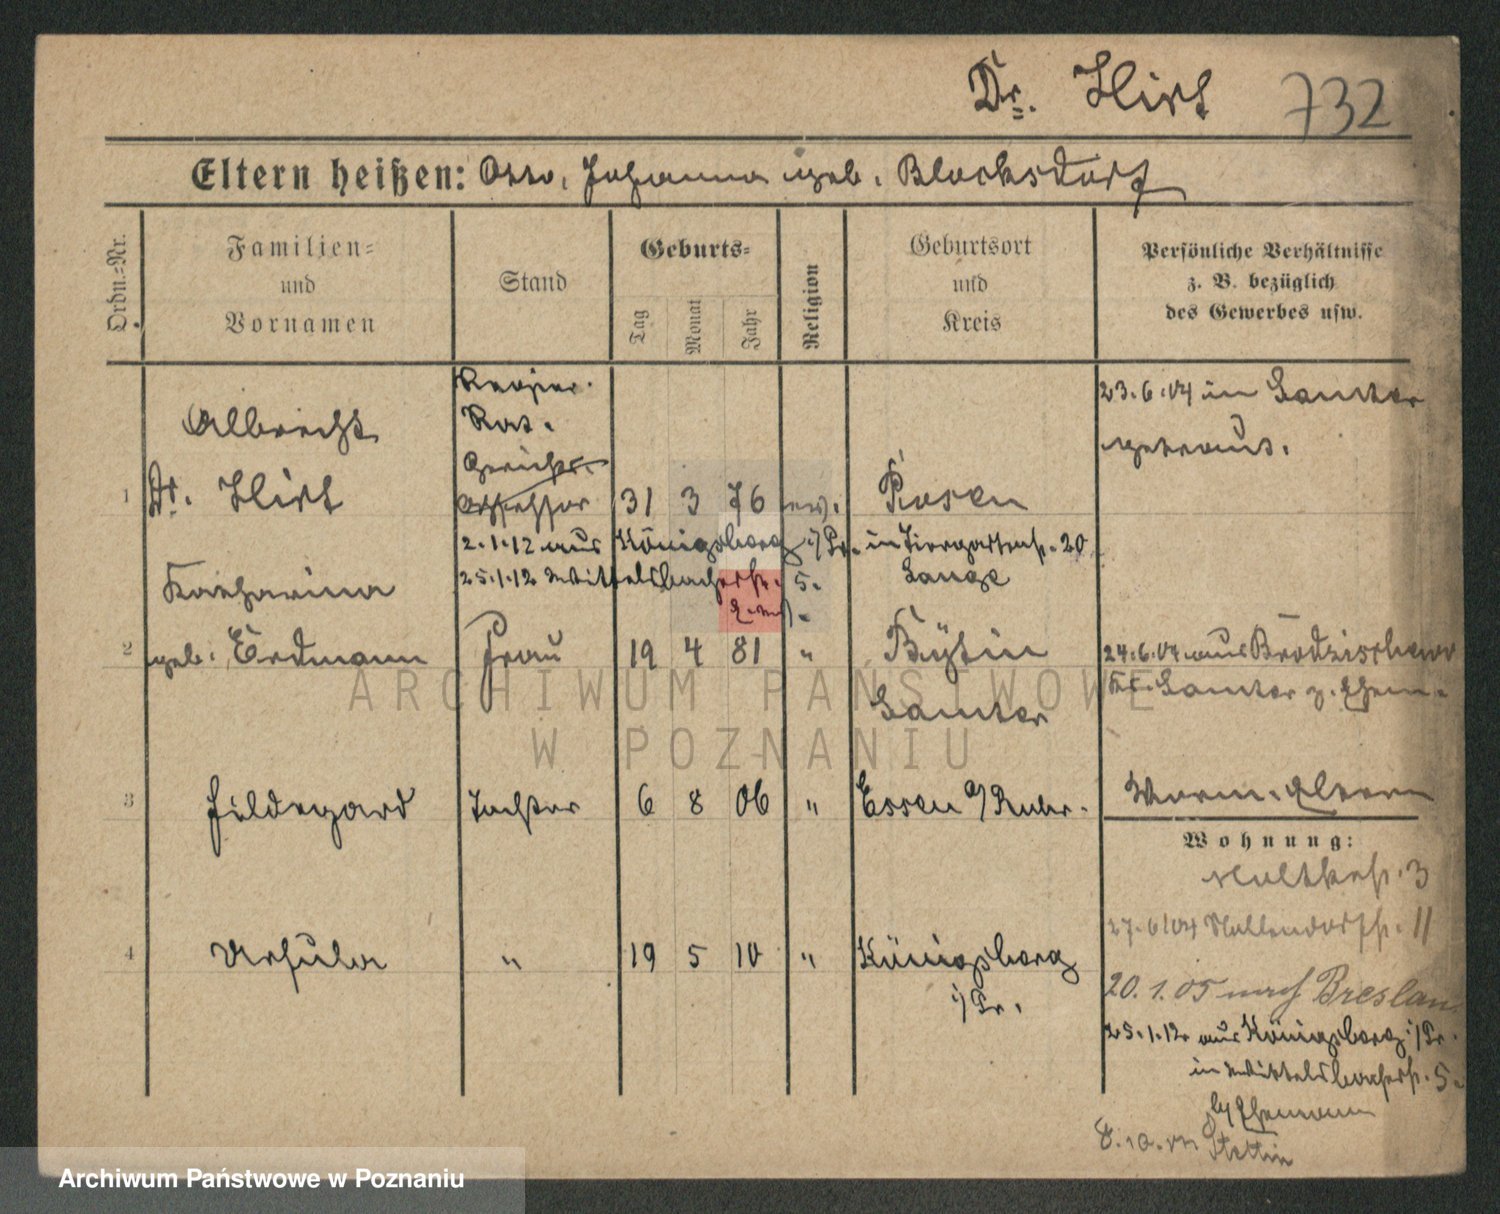 Dr. Hirt 732
Eltern heißen: Otto, Johanna geb. Blocksdorf
Ordn.-Nr.
Familien-
und
Vornamen
Stand
Geburts-
Tag
Monat
Jahr
Religion
Geburtsort
und
Kreis
Persönliche Verhältnisse
z. B. bezüglich
des Gewerbes usw.
Regier.
Rat.
Gerichts-
1 Albrecht
Dr. Hirt Assessor 31 3 76 ev. Posen
23.6.04 in Samter
getraut.
2.1.12 aus Königsberg i/Pr. in Tiergartenstr. 20
25.1.12 Wittelsbacherstr. 5. Lange
2 Katharina
geb. Erdmann Frau 19 4 81 " Bytin
Samter
24.6.04 aus
Kr. Samter z. Ehem.
3 Hildegard Tochter 6 8 06 " Essen a/Ruhr.
Wohnung:
Moltkestr. 3
27.6.04 Möllendorfstr. 11
4 Ursula " 19 5 10 " Königsberg
i/Pr.
20.1.05 nach Breslau
25.1.12 aus Königsberg i/Pr.
in Wittelsbacherstr. 5.
b/Ehemann
8.10. Stettin
ARCHIWUM PAŃSTWOWE
W POZNANIU
Archiwum Państwowe w Poznaniu